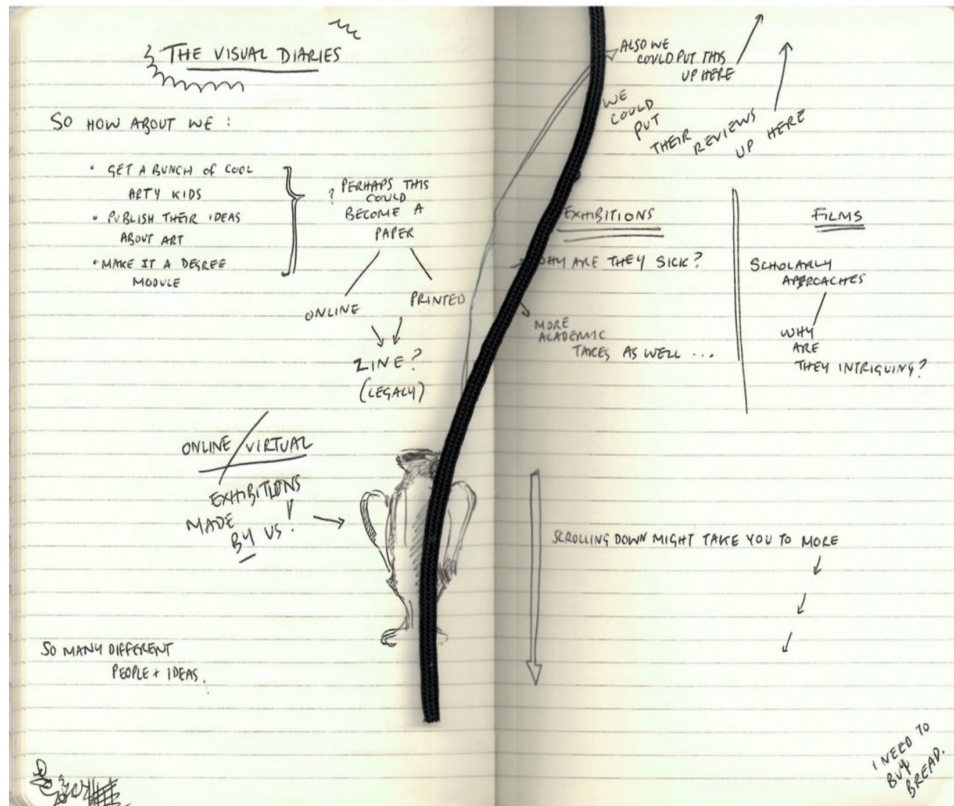 THE VISUAL DIARIES
SO HOW ABOUT WE :
• GET A BUNCH OF COOL
ARTY KIDS
• PUBLISH THEIR IDEAS
ABOUT ART
• MAKE IT A DEGREE
MODULE
? PERHAPS THIS
COULD
BECOME A
PAPER
ONLINE
PRINTED
ZINE?
(LEGACY)
ONLINE/VIRTUAL
EXHIBITIONS
MADE
BY US!
SO MANY DIFFERENT
PEOPLE + IDEAS.
ALSO WE
COULD PUT THIS
UP HERE
WE
COULD
PUT
THEIR REVIEWS
UP HERE
EXHIBITIONS
WHY ARE THEY SICK?
MORE
ACADEMIC
TAKES AS WELL ...
FILMS
SCHOLARLY
APPROACHES
WHY
ARE
THEY INTRIGUING?
SCROLLING DOWN MIGHT TAKE YOU TO MORE
I NEED TO
BUY
BREAD.